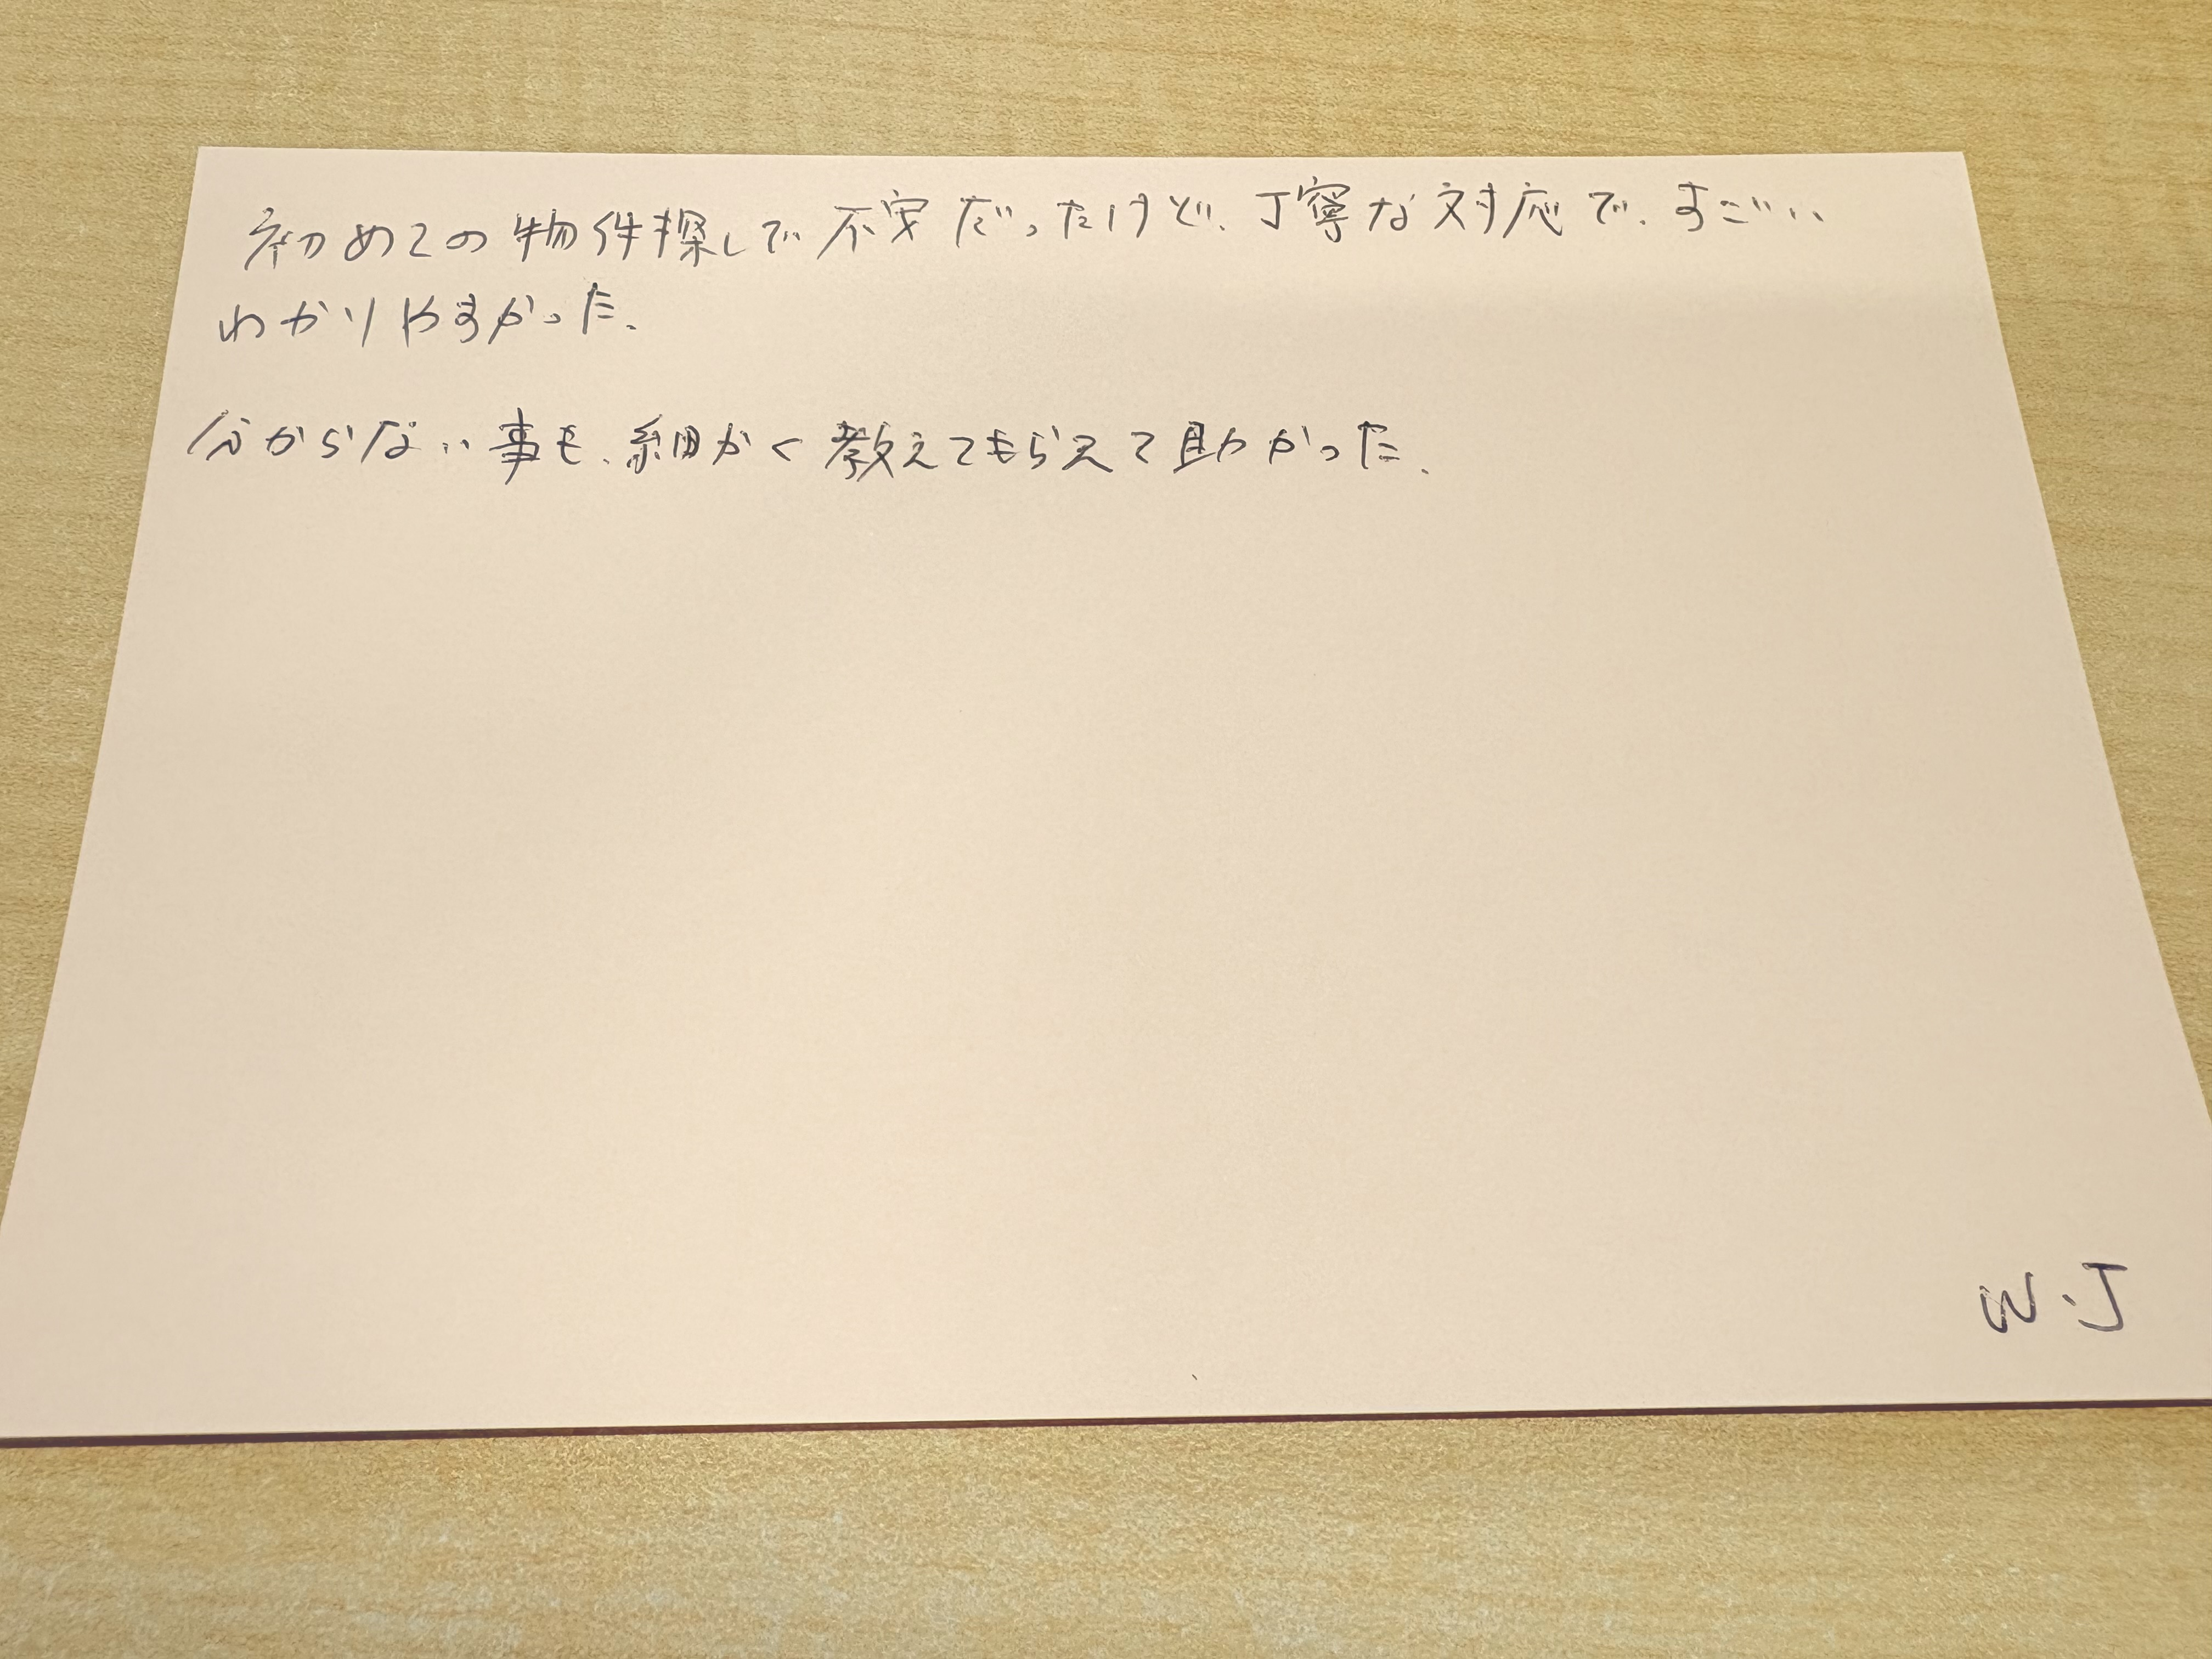 初めての物件探しで不安だったけど、丁寧な対応で、すごいい
わかりやすかった。
分からない事も、細かく教えてもらえて助かった。
W.J